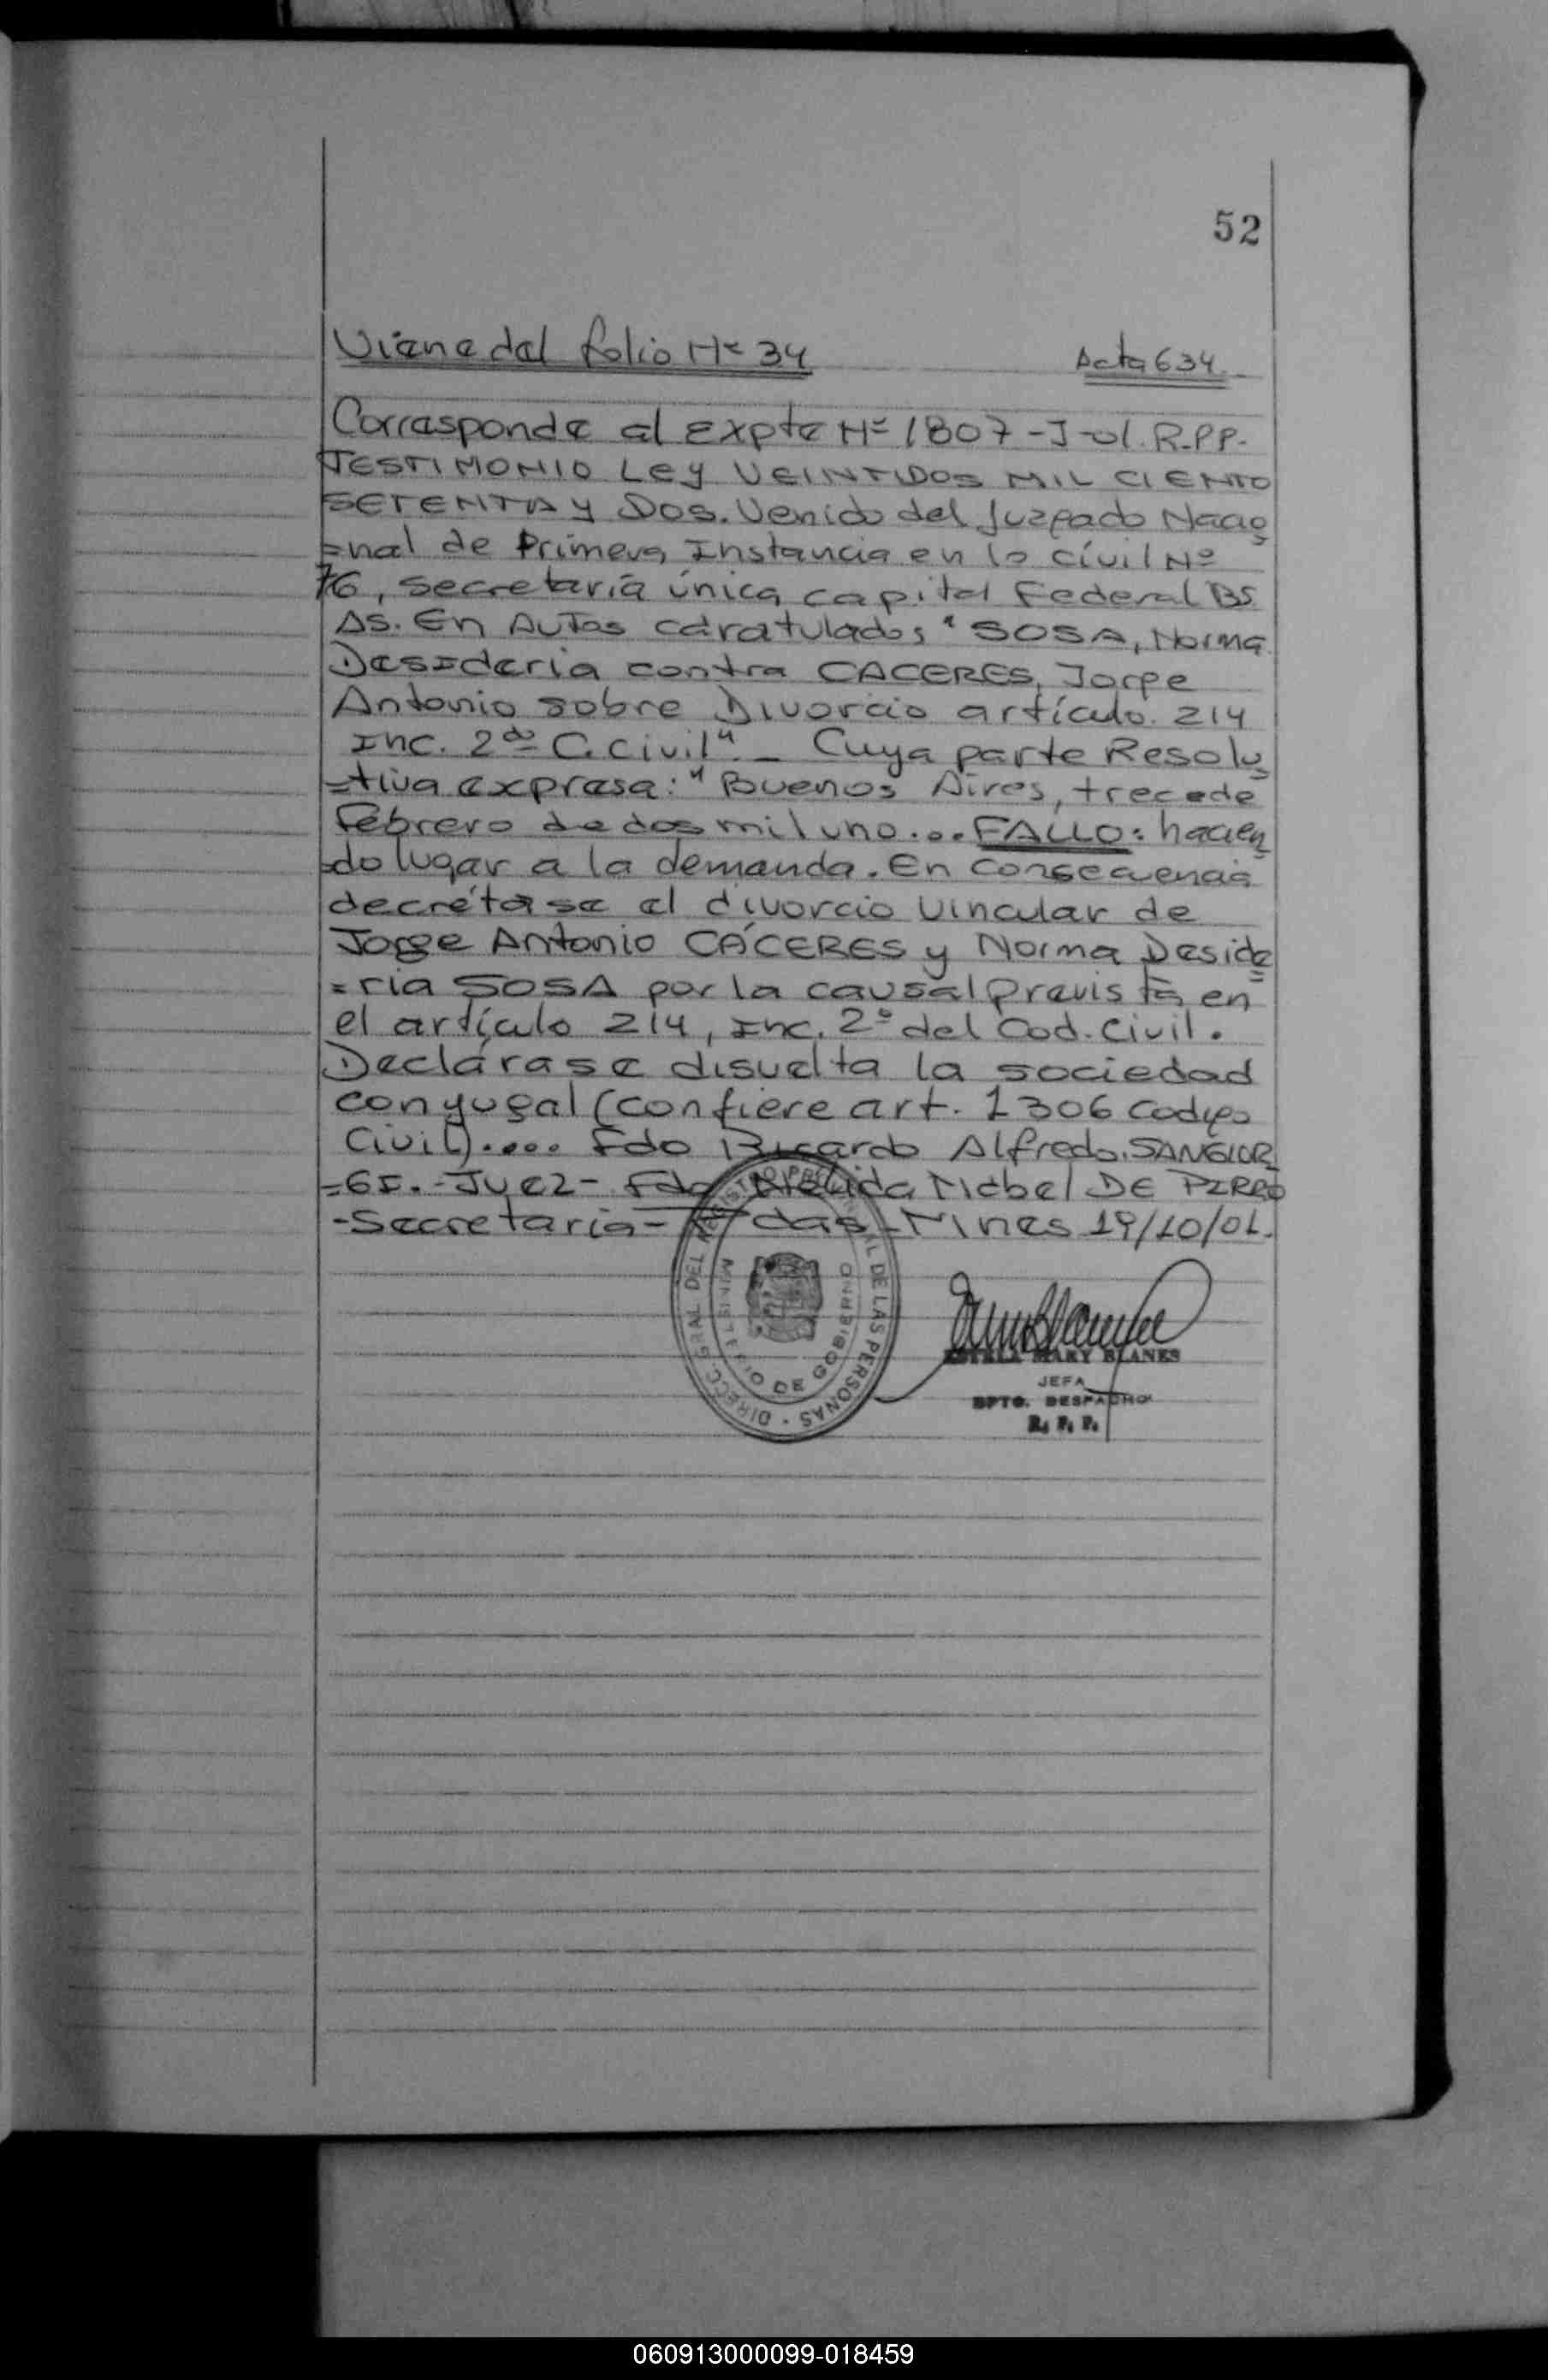 52
Viene del folio Nº 34 Acta 634
Corresponde al Expte Nº 1807-J-01. R.P.P.
TESTIMONIO Ley VEINTIDOS MIL CIENTO
SETENTA y Dos. Venido del Juzgado Nacio
=nal de Primera Instancia en lo civil Nº
76, secretaría única capital Federal BS
AS. En AuTos caratulados "SOSA, Norma
Desideria contra CACERES, Jorge
Antonio sobre Divorcio artículo. 214
Inc. 2do C. Civil". - Cuya parte Resolu
=tiva expresa: "Buenos Aires, trece de
Febrero de dos mil uno... FALLO: hacien
=do lugar a la demanda. En consecuencia
decrétase el divorcio vincular de
Jorge Antonio CÁCERES y Norma Deside
=ria SOSA por la causal prevista en
el artículo 214, Inc. 2º del Cod. Civil.
Declárase disuelta la sociedad
conyugal (confiere art. 1306 Codigo
Civil).... Fdo Ricardo Alfredo. SANGIOR
=GI. - Juez - Fdo Mabel DE
-Secretaria- Mnes 19/10/01.
DIRECC. GRAL DEL REGISTRO PROVINCIAL DE LAS PERSONAS
MINISTERIO DE GOBIERNO
ESTELA MARY BLANES
JEFA
DPTO. DESPACHO
R. P. P.
060913000099-018459